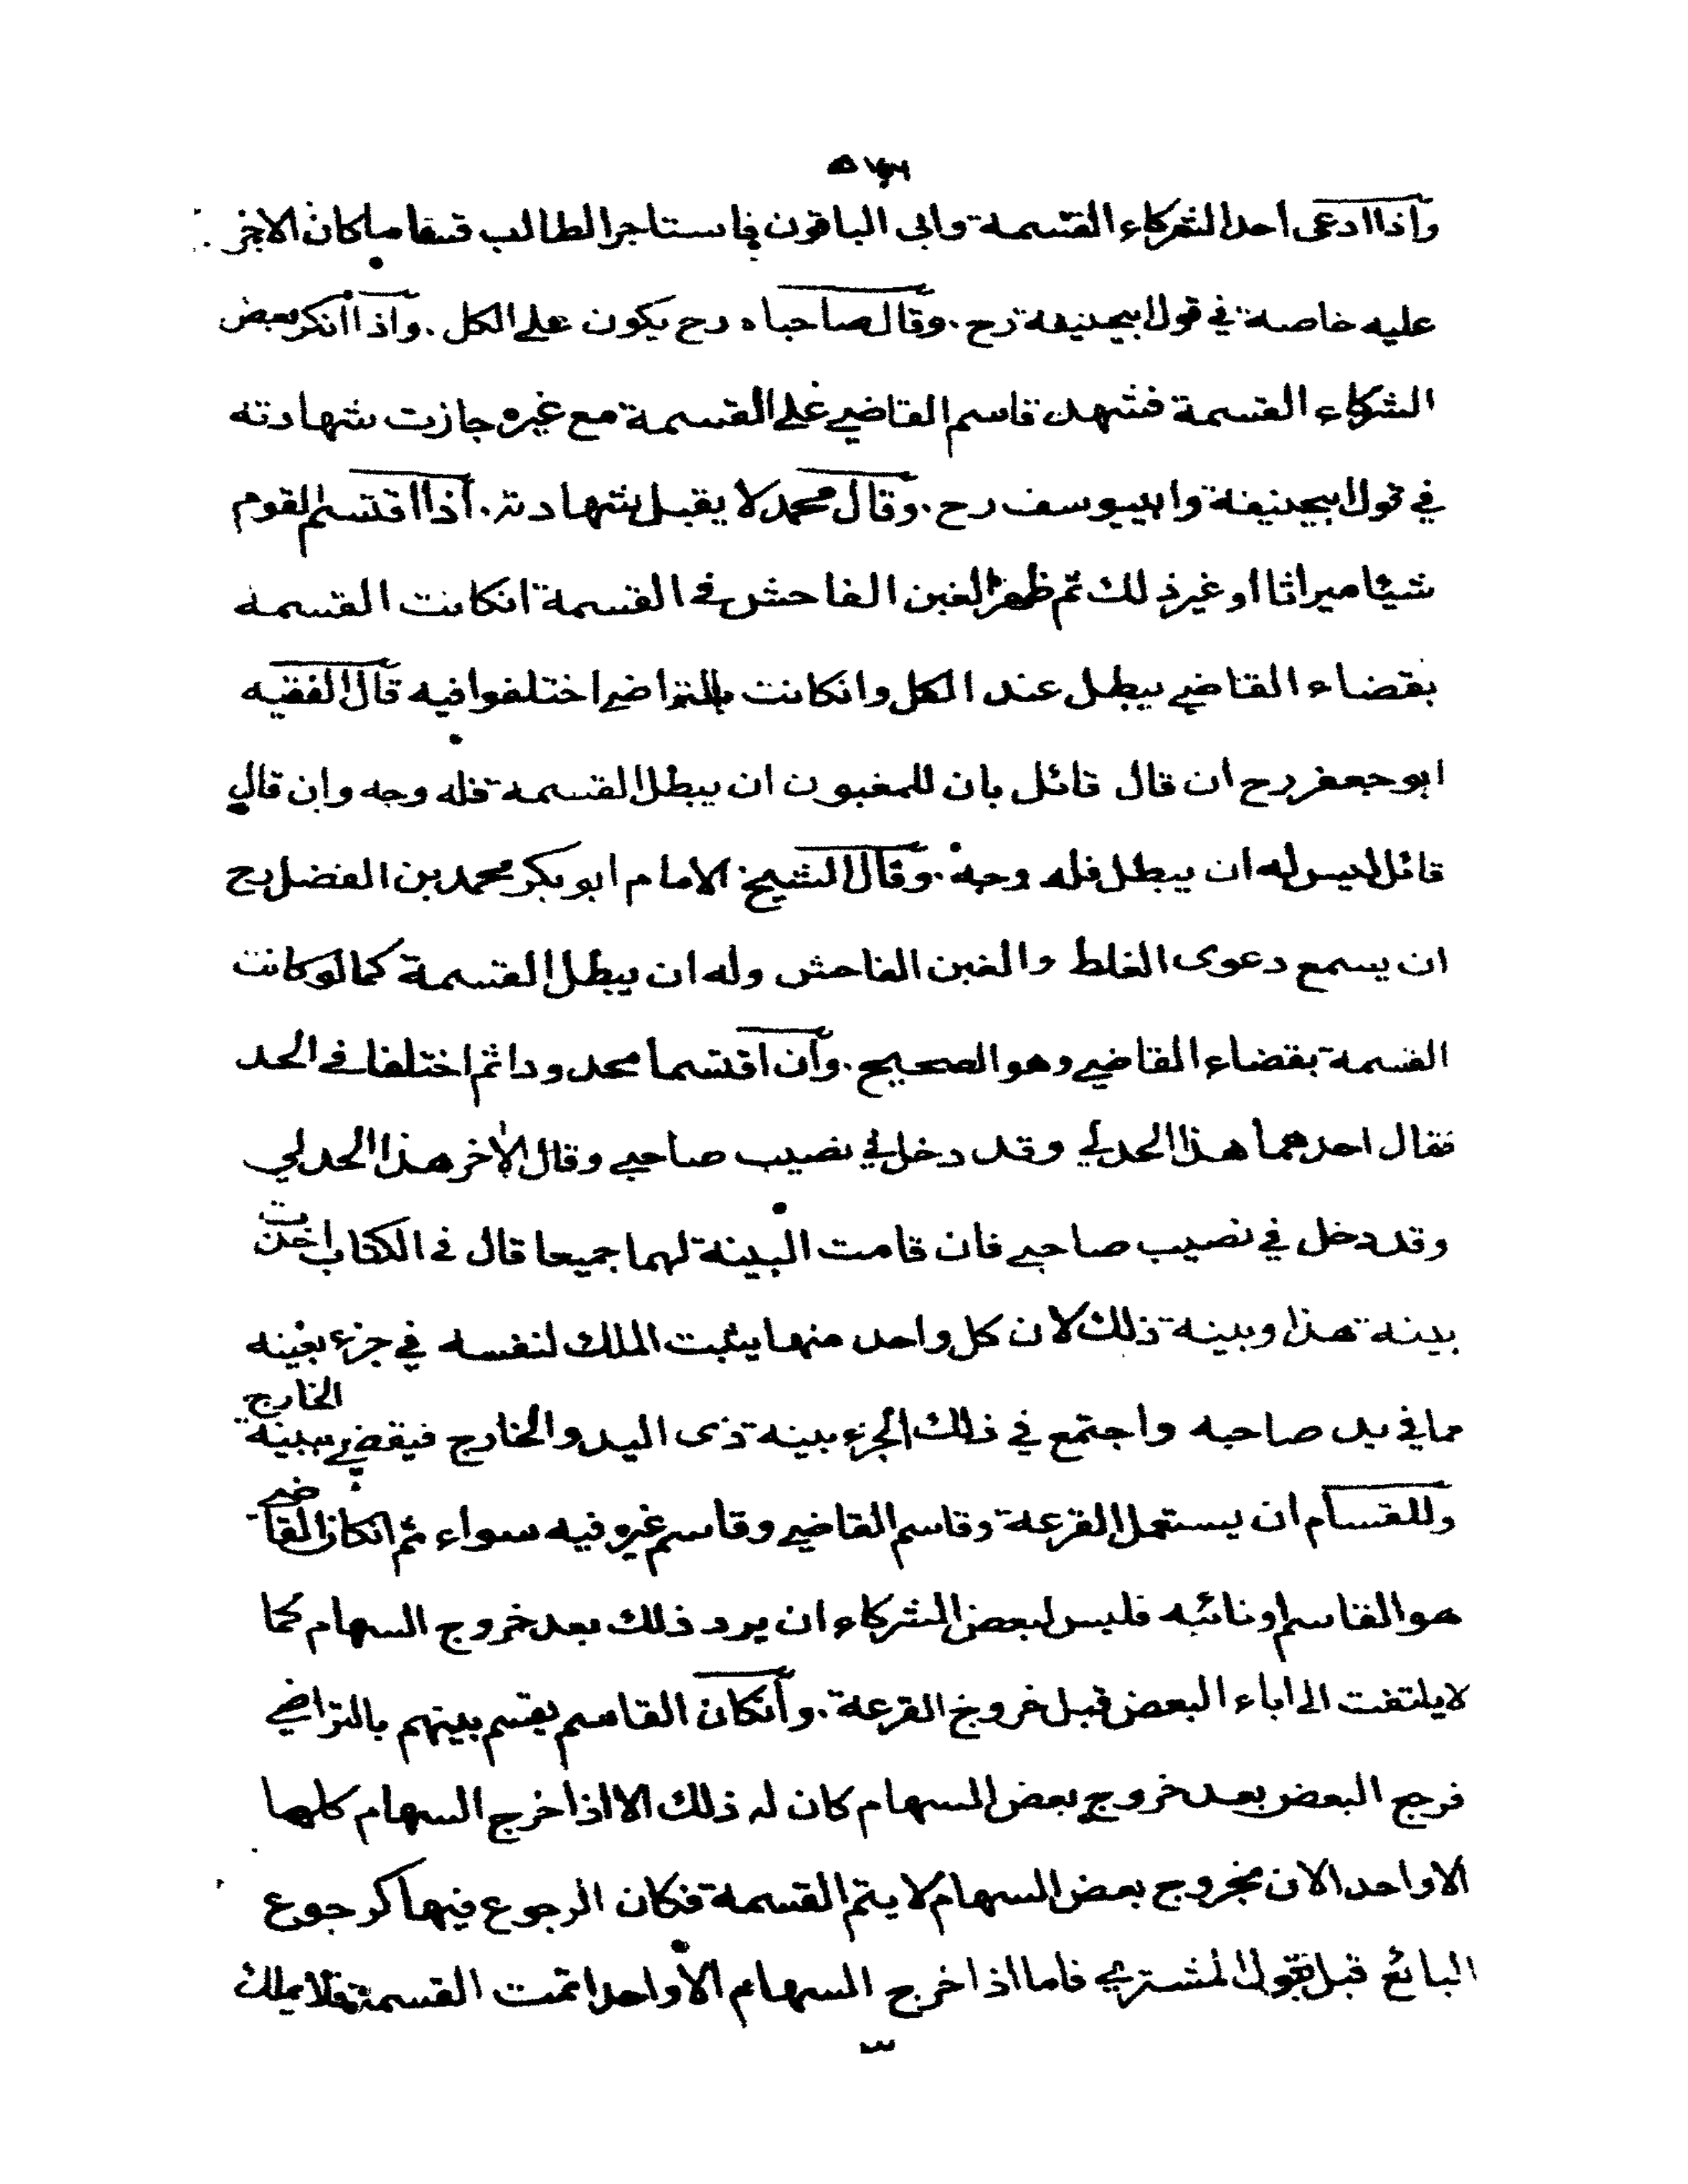 واذا ادعى احد الشركاء القسمة وابى الباقون فاستاجر الطالب قساما كان الاجر
عليه خاصة في قول ابيحنيفة رح . وقال صاحباه رح يكون على الكل . واذا انكر بعض
الشركاء القسمة فشهد قاسم القاضي على القسمة مع غيره جازت شهادته
في قول ابيحنيفة وابييوسف رح . وقال محمد لا يقبل شهادته . اذا اقتسم القوم
شيئا ميراثا او غير ذلك ثم ظهر الغبن الفاحش في القسمة انكانت القسمة
بقضاء القاضي يبطل عند الكل وانكانت بالتراضي اختلفوا فيه قال الفقيه
ابو جعفر رح ان قال قائل بان للمغبون ان يبطل القسمة فله وجه وان قال
قائل ليس له ان يبطل فله وجه . وقال الشيخ الامام ابو بكر محمد بن الفضل رح
ان يسمع دعوى الغلط والغبن الفاحش وله ان يبطل القسمة كما لو كانت
القسمة بقضاء القاضي وهو الصحيح . وان اقتسما محدودا ثم اختلفا في الحد
فقال احدهما هذا الحد لي وقد دخل في نصيب صاحبي وقال الاخر هذا الحد لي
وقد دخل في نصيب صاحبي فان قامت البينة لهما جميعا قال في الكتاب اخذت
بينة هذا وبينة ذلك لان كل واحد منهما يثبت الملك لنفسه في جزء بعينه
مما في يد صاحبه واجتمع في ذلك الجزء بينة ذى اليد والخارج فيقضي ببينة الخارج
وللقسام ان يستعمل القرعة وقاسم القاضي وقاسم غيره فيه سواء ثم انكان القاضي
هو القاسم او نائبه فليس لبعض الشركاء ان يرد ذلك بعد خروج السهام كما
لا يلتفت الى اباء البعض قبل خروج القرعة . وانكان القاسم يقسم بينهم بالتراضي
فرجع البعض بعد خروج بعض السهام كان له ذلك الا اذا خرج السهام كلها
الا واحد الان بخروج بعض السهام لا يتم القسمة فكان الرجوع فيها كرجوع
البائع قبل قبول المشتري فاما اذا خرج السهام الا واحدا تمت القسمة فلا يملك